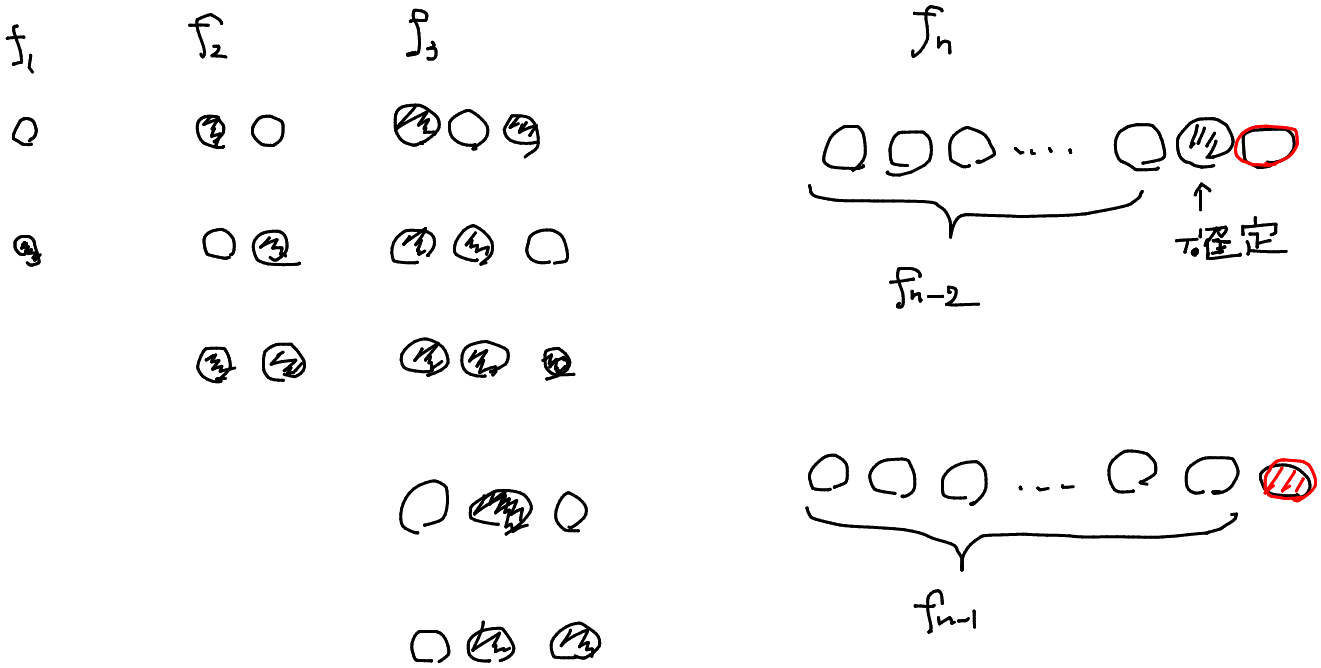 f1 f2 f3 fn
確定
fn-2
fn-1